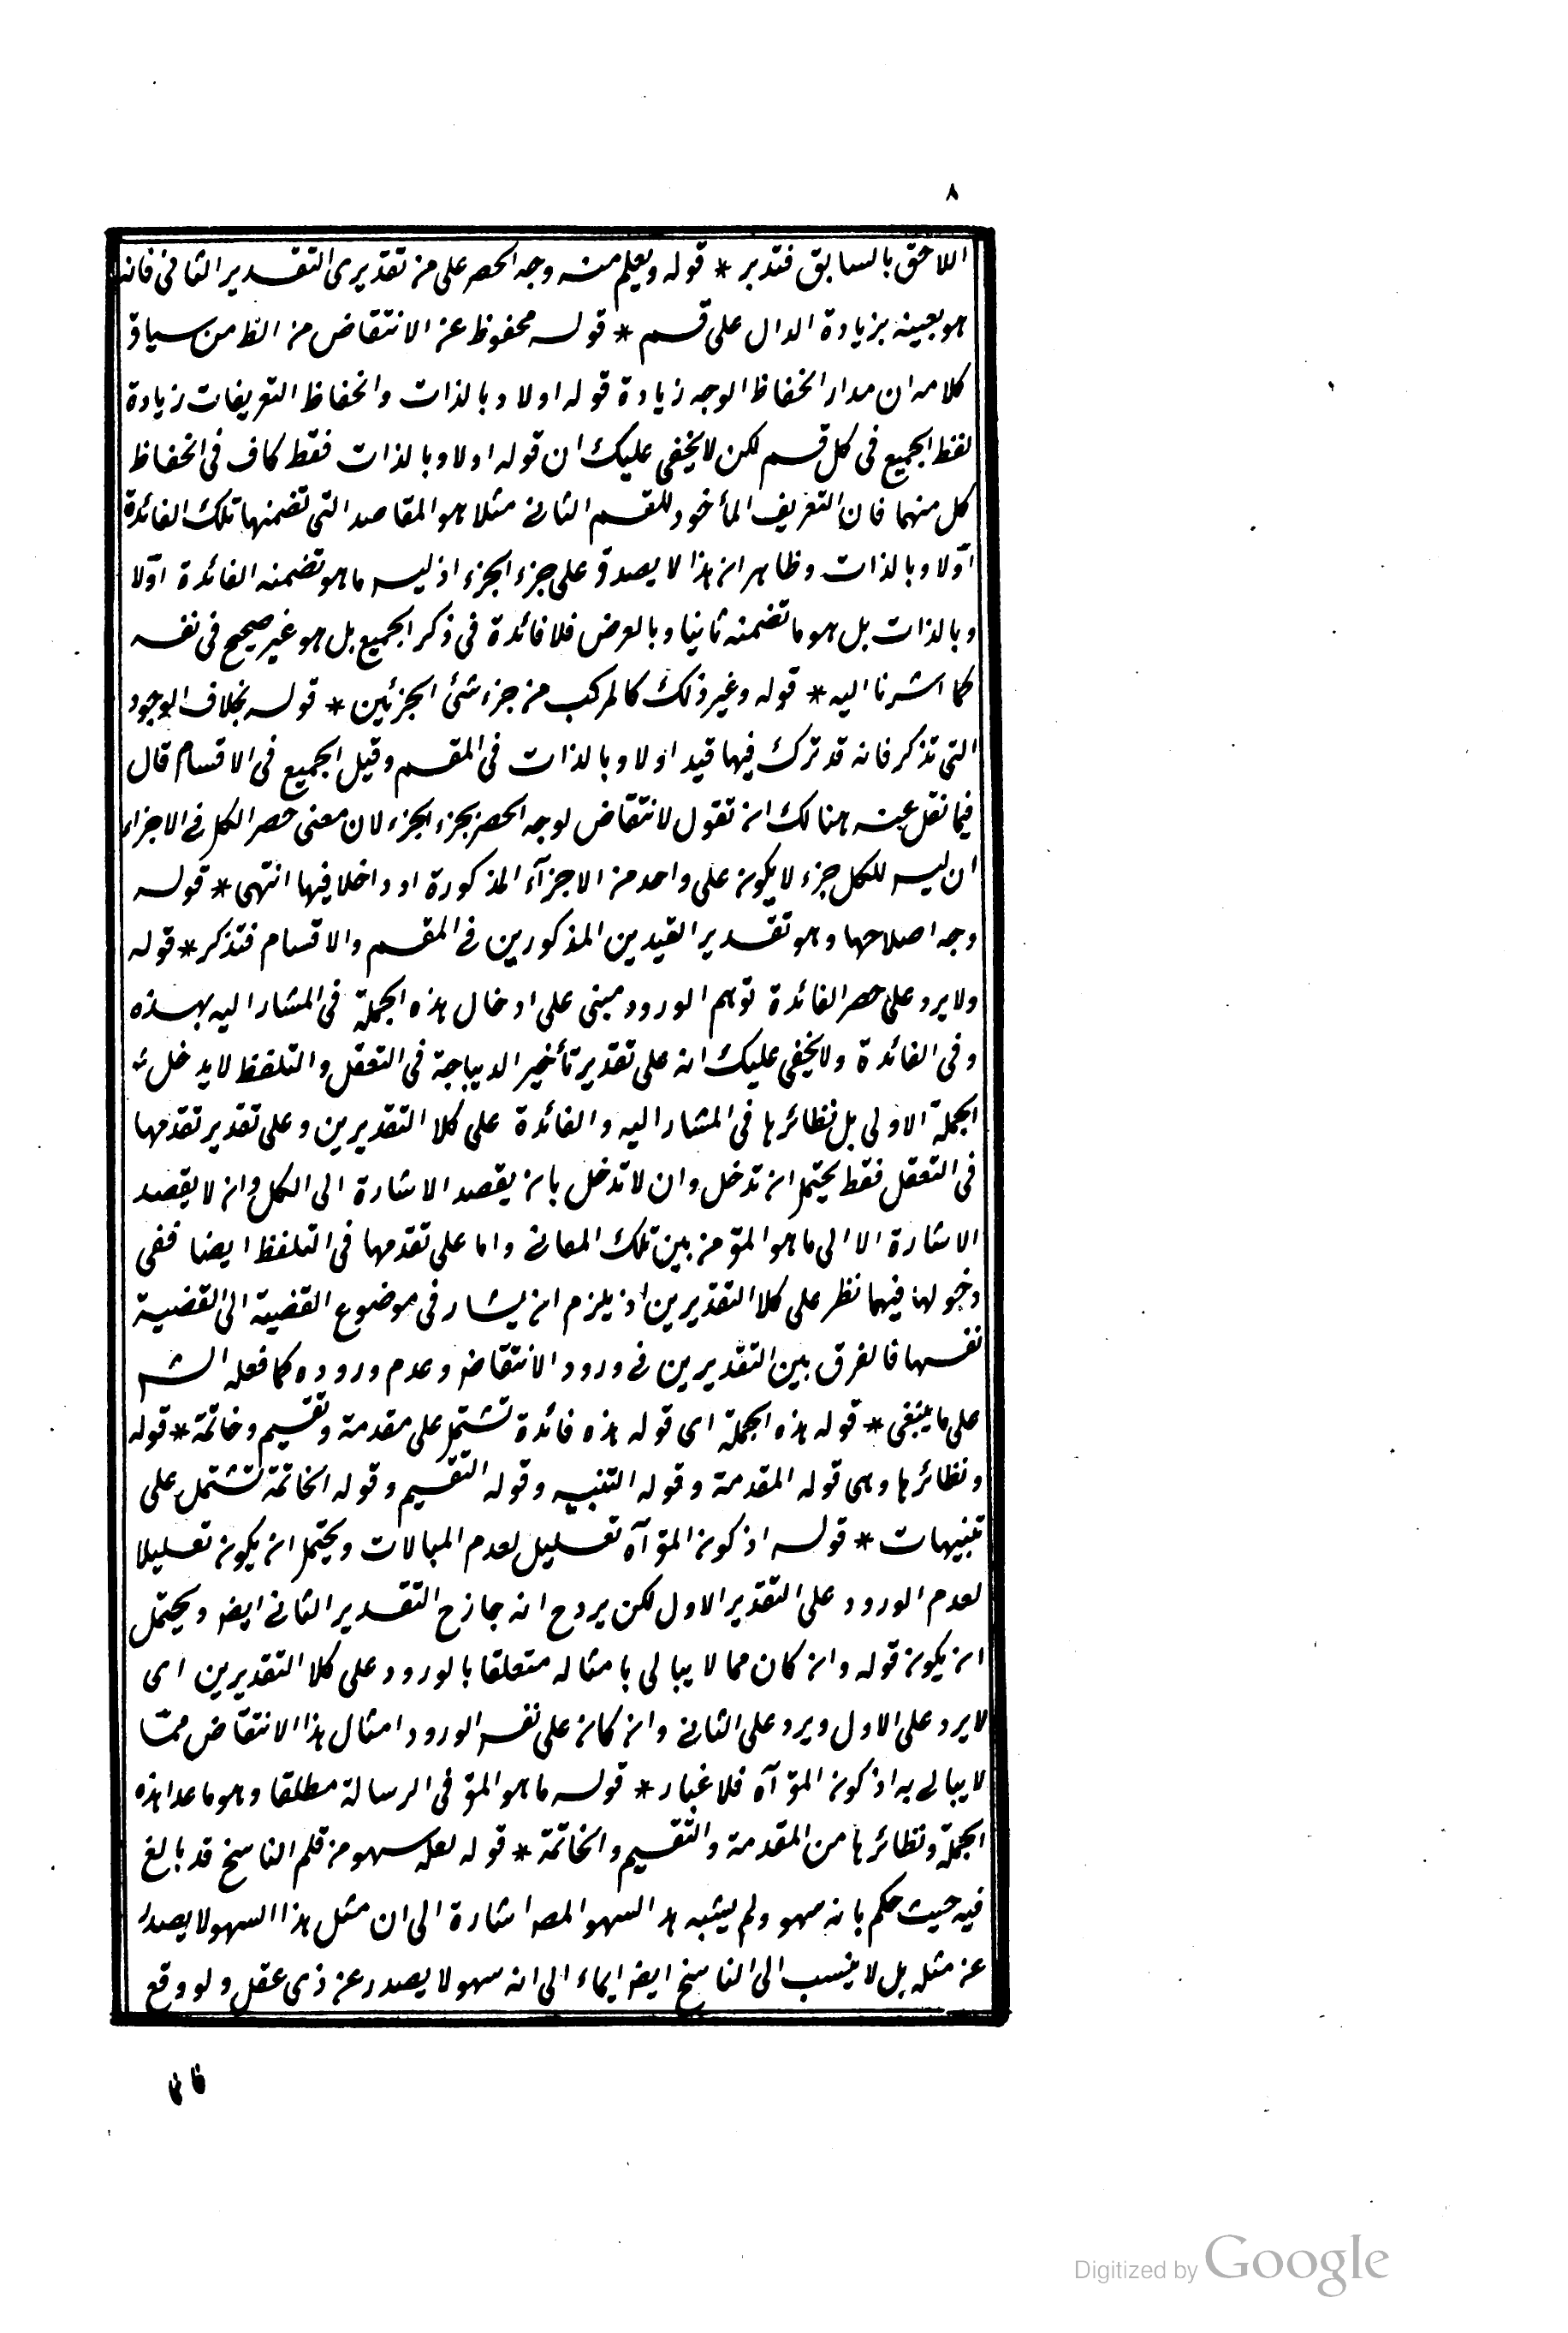 ٨
اللاحق بالسابق فتدبر * قوله ويعلم منه وجه الحصر على من تقديرى التقدير الثانى فانه
هو بعينه بزيادة الدال على قسم * قوله محفوظ عن الانتقاض من الظ من سياق
كلامه ان مدار انحفاظ الوجه زيادة قوله اولا وبالذات وانحفاظ التعريفات زيادة
لفظ الجميع فى كل قسم لكن لا يخفى عليك ان قوله اولا وبالذات فقط كاف فى انحفاظ
كل منهما فان التعريف المأخوذ للقسم الثانى مثلا هو المقاصد التى تضمنها تلك الفائدة
اوّلا وبالذات وظاهر ان هذا لا يصدق على جزء الجزء اذ ليس ما هو تضمنه الفائدة اوّلا
وبالذات بل هو ما تضمنه ثانيا وبالعرض فلا فائدة فى ذكر الجميع بل هو غير صحيح فى نفسه
كما اشرنا اليه * قوله وغير ذلك كالمركب من جزء شئ الجزئين * قوله بخلاف الوجود
التى تذكر فانه قد ترك فيها قيد اولا وبالذات فى المقسم وقيل الجميع فى الاقسام قال
فيما نقل عنه هنا لك ان تقول لانتقاض لوجه الحصر بجزء الجزء لان معنى حصر الكل فى الاجزاء
ان ليس للكل جزء لا يكون على واحد من الاجزآء المذكورة او داخلا فيها انتهى * قوله
وجه اصلاحها وهو تقدير القيدين المذكورين فى المقسم والاقسام فتذكر * قوله
ولا يرد على حصر الفائدة توهم الورود مبنى على ادخال هذه الجملة فى المشار اليه بهذه
وفى الفائدة ولا يخفى عليك انه على تقدير تأخير الديباجة فى التعقل والتلفظ لا يدخل
الجملة الاولى بل نظائرها فى المشار اليه والفائدة على كلا التقديرين وعلى تقدير تقدمها
فى التعقل فقط يحتمل ان تدخل وان لا تدخل بان يقصد الاشارة الى الكل وان لا يقصد
الاشارة الا الى ما هو المقو من بين تلك المعانى واما على تقدمها فى التلفظ ايضا ففى
دخولها فيهما نظر على كلا التقديرين اذ يلزم ان يشار فى موضوع القضية الى القضية
نفسها فالفرق بين التقديرين فى ورود الانتقاض وعدم وروده كما فعله الش
على ما ينبغى * قوله هذه الجملة اى قوله هذه فائدة تشتمل على مقدمة وتقسيم وخاتمة * قوله
ونظائرها وهى قوله المقدمة وقوله التنبيه وقوله التقسيم وقوله الخاتمة تشتمل على
تنبيهات * قوله اذ كون المقو آه تعليل لعدم المبالات ويحتمل ان يكون تعليلا
لعدم الورود على التقدير الاول لكن يرد ح انه جاز ح التقدير الثانى ايض ويحتمل
ان يكون قوله وان كان مما لا يبالى بامثاله متعلقا بالورود على كلا التقديرين اى
لا يرد على الاول ويرد على الثانى وان كان على نفس الورود امثال هذا الانتقاض ممّا
لا يبالى به اذ كون المقو آه فلا غبار * قوله ما هو المقو فى الرسالة مطلقا وهو ما عدا هذه
الجملة ونظائرها من المقدمة والتقسيم والخاتمة * قوله لعله سهو من قلم الناسخ قد بالغ
فيه حيث حكم بانه سهو ولم ينسبه السهو المص اشارة الى ان مثل هذا السهو لا يصدر
عن مثله بل لا ينسب الى الناسخ ايض ايماء الى انه سهو لا يصدر عن ذى عقل ولو وقع
Digitized by Google